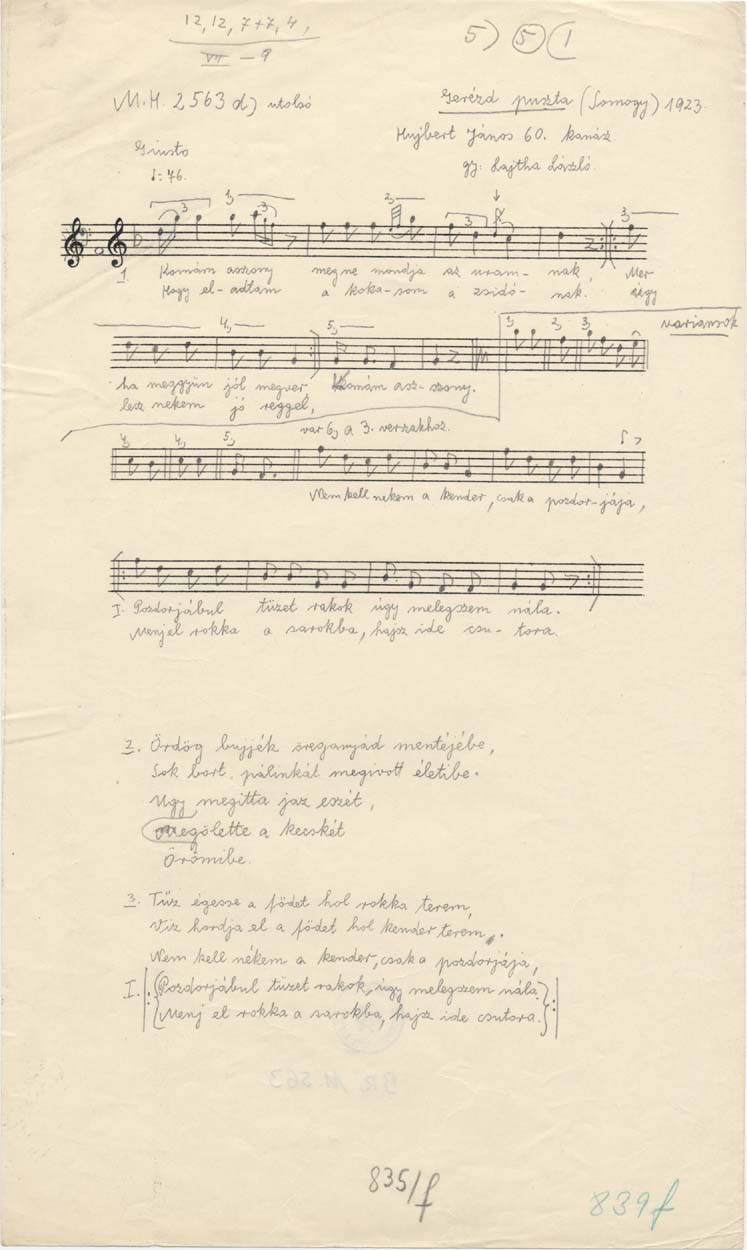 12, 12, 7+7, 4,
VII – 9
5) 5 ( 1
M.H. 2563 d) utolsó
Gerézd puszta (Somogy) 1923.
Hujbert János 60. kanász
gy: Lajtha László.
Giusto
♩= 76.
3 1, 3 2, 3 3,
1 Komám aszony megne mondja az uram- nak, Mer
Hogy el- adtam a koka-som a zsidó- nak. úgy
4, 5, 1, 2, 3, variánsok
ha meggyün jól megver Komám asz- szony.
lesz nekem jó reggel,
var 6, a 3. verszakhoz.
4, 4, 5,
Nem kell nekem a kender, csak a pozdor-jája,
I. Pozdorjábul tüzet rakok úgy melegszem nála.
Menjel rokka a sarokba, hajsz ide csu- tora.
2. Ördög bujjék öreganyád mentéjébe,
Sok bort, pálinkát megivott életibe.
Ugy megitta jaz eszét,
megölette a kecskét
Örömibe.
3. Tűz égesse a födet hol rokka terem,
Viz hordja el a födet hol kender terem,
Nem kell nékem a kender, csak a pozdorjája,
I. Pozdorjábul tüzet rakok, úgy melegszem nála.
Menj el rokka a sarokba, hajsz ide csutora.
BR. M. 563
835/f
839f